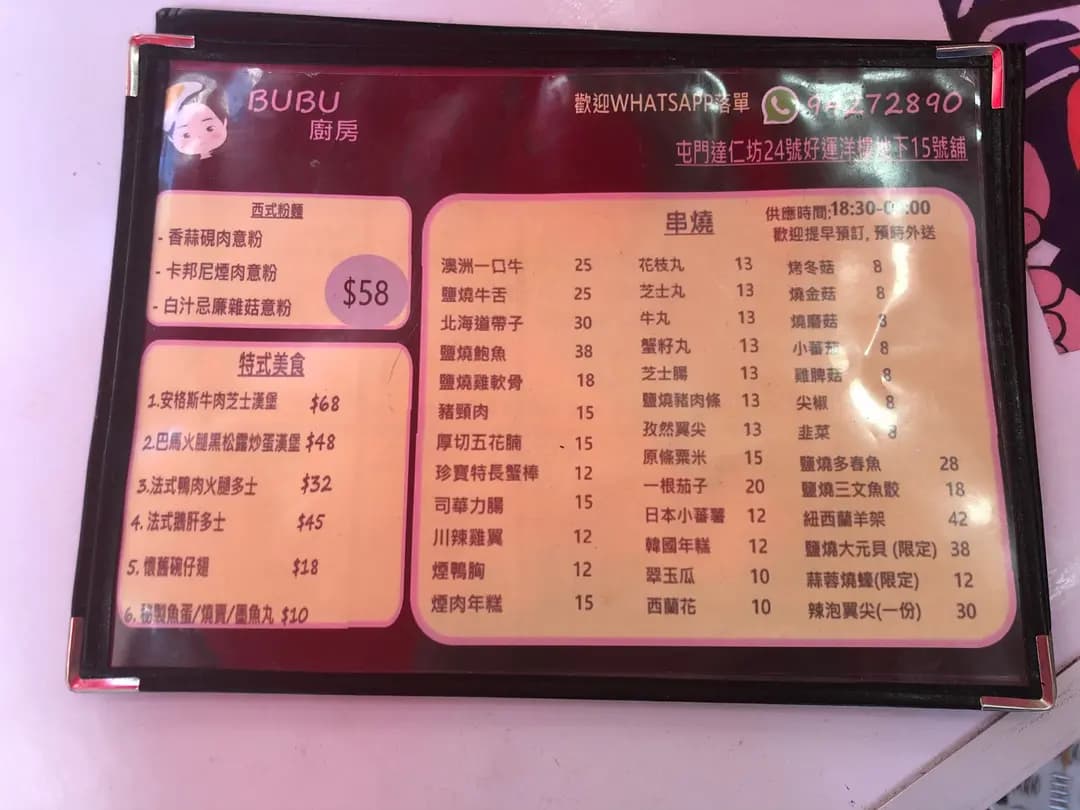 BUBU
廚房
歡迎WHATSAPP落單 94272890
屯門達仁坊24號好運洋樓地下15號舖
西式粉麵
- 香蒜硯肉意粉
- 卡邦尼煙肉意粉
- 白汁忌廉雜菇意粉
$58
特式美食
1.安格斯牛肉芝士漢堡 $68
2.巴馬火腿黑松露炒蛋漢堡 $48
3.法式鴨肉火腿多士 $32
4.法式鵝肝多士 $45
5.懷舊碗仔翅 $18
6.秘製魚蛋/燒賣/墨魚丸 $10
串燒
供應時間:18:30-0 :00
歡迎提早預訂, 預時外送
澳洲一口牛 25
鹽燒牛舌 25
北海道帶子 30
鹽燒鮑魚 38
鹽燒雞軟骨 18
豬頸肉 15
厚切五花腩 15
珍寶特長蟹棒 12
司華力腸 15
川辣雞翼 12
煙鴨胸 12
煙肉年糕 15
花枝丸 13
芝士丸 13
牛丸 13
蟹籽丸 13
芝士腸 13
鹽燒豬肉條 13
孜然翼尖 13
原條粟米 15
一根茄子 20
日本小蕃薯 12
韓國年糕 12
翠玉瓜 10
西蘭花 10
烤冬菇 8
燒金菇 8
燒磨菇 8
小蕃茄 8
雞脾菇 8
尖椒 8
韭菜 8
鹽燒多春魚 28
鹽燒三文魚骹 18
紐西蘭羊架 42
鹽燒大元貝 (限定) 38
蒜蓉燒蠔(限定) 12
辣泡翼尖(一份) 30